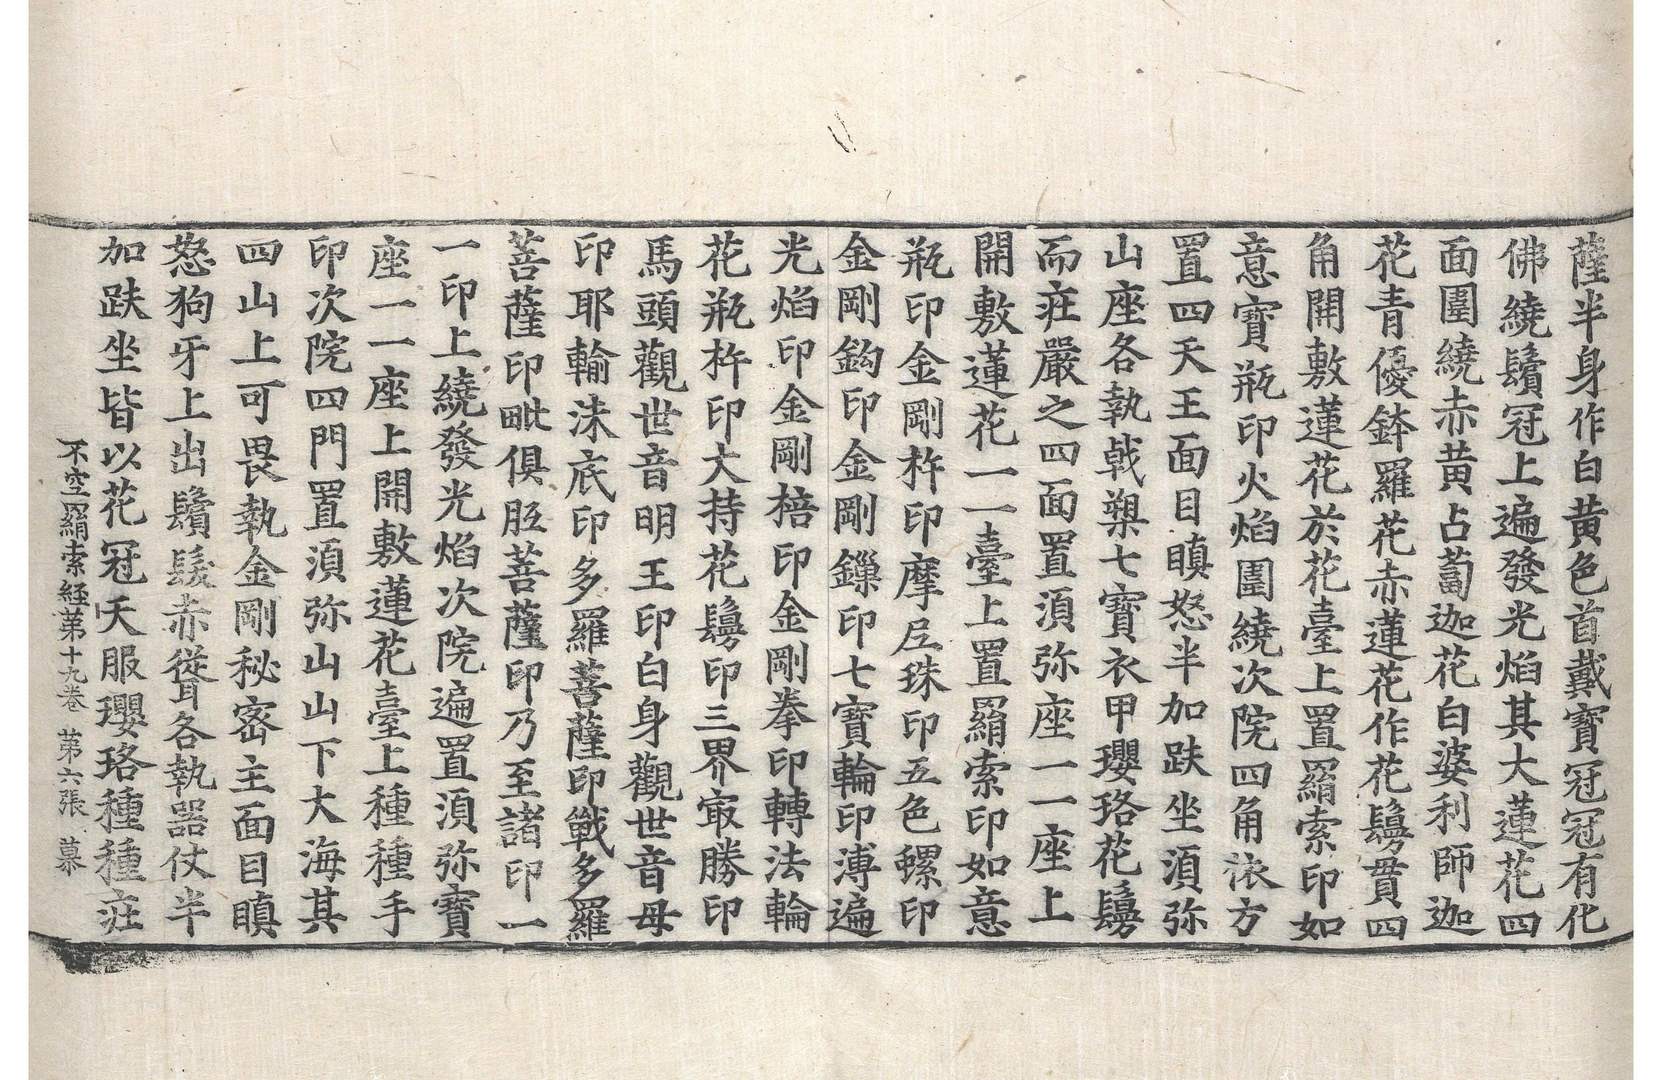 薩半身作白黄色首戴寶冠冠有化
佛繞鬚冠上遍發光焰其大蓮花四
面圍繞赤黄占蔔迦花白婆利師迦
花青優鉢羅花赤蓮花作花鬘貫四
角開敷蓮花於花臺上置羂索印如
意寶瓶印火焰圍繞次院四角依方
置四天王面目瞋怒半加趺坐湏弥
山座各執戟槊七寶衣甲瓔珞花鬘
而莊嚴之四面置湏弥座一一座上
開敷蓮花一一臺上置羂索印如意
瓶印金剛杵印摩尼珠印五色螺印
金剛鈎印金剛鏁印七寶輪印溥遍
光焰印金剛棓印金剛拳印轉法輪
花瓶杵印大持花鬘印三界㝡勝印
馬頭觀世音明王印白身觀世音母
印耶輸沬底印多羅菩薩印戰多羅
菩薩印毗俱胝菩薩印乃至諸印一
一印上繞發光焰次院遍置湏弥寶
座一一座上開敷蓮花臺上種種手
印次院四門置湏弥山山下大海其
四山上可畏執金剛秘密主面目瞋
怒狗牙上出鬚髮赤聳各執器仗半
加趺坐皆以花冠天服瓔珞種種莊
不空羂索経第十九卷 第六張 慕